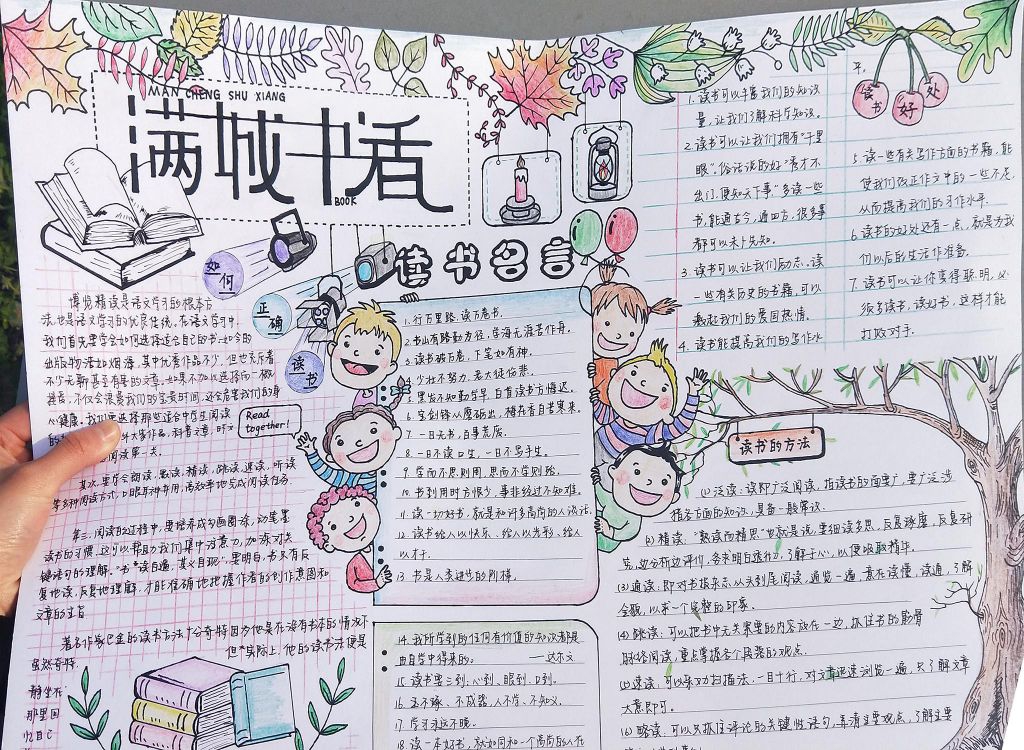 MAN CHENG SHU XIANG
满城书香
BOOK
如何
正确
读书
博览精读是语文学习的根本方
法,也是语文学习的优良传统。在语文学习中,
我们首先要学会如何选择适合自己的书,如今的
出版物浩如烟海,其中优秀作品不少,但也充斥着
不少无聊甚至有害的文章。如果不加以选择而一概
接受,不仅会浪费我们的宝贵时间,还会危害我们的身
心健康。我们要选择那些适合中学生阅读
大家作品,科普文章,时文
阅读第一关。
其次,要学会朗读、默读、精读、跳读、速读、听读
等多种阅读方式,口眼耳神并用,高效率地完成阅读任务
第三,阅读的过程中,要培养成勾画圈涂,动笔墨
读书的习惯,这可以帮助我们集中注意力,加深对关
键语句的理解。"书读百遍,其义自现",要明白,书只有反
复地读,反复地理解,才能准确地把握作者的创作意图和
文章的主旨
著名作家巴金的读书方法十分奇特因为他是在没有书本的情况下
虽然奇特 但"实际上,他的读书方法便是
静坐在
那里回
忆自己
Read
together!
读书名言
1. 行万里路,读万卷书。
2. 书山有路勤为径,学海无涯苦作舟。
3. 读书破万卷,下笔如有神。
4. 少壮不努力,老大徒伤悲。
5. 黑发不知勤学早,白首读书方悔迟。
6. 宝剑锋从磨砺出,梅花香自苦寒来。
7. 一日无书,百事荒废。
8. 一日不读口生,一日不写手生。
9. 学而不思则罔,思而不学则殆。
10. 书到用时方恨少,事非经过不知难。
11. 读一切好书,就是和许多高尚的人谈话。
12. 读书给人以快乐、给人以光彩、给人
以才干。
13. 书是人类进步的阶梯。
14. 我所学到的任何有价值的知识都是
由自学中得来的。 ——达尔文
15. 读书要三到:心到、眼到、口到。
16. 玉不琢、不成器,人不学、不知义。
17. 学习永远不晚。
18. 读一本好书,就如同和一个高尚的人在
读书好处
1. 读书可以丰富我们的知识
量,让我们了解科学知识。
2. 读书可以让我们拥有"千里
眼"。俗话说的好"秀才不
出门,便知天下事"多读一些
书,能通古今,通四方,很多事
都可以未卜先知。
3. 读书可以让我们励志。读
一些有关历史的书籍,可以
激起我们的爱国热情。
4. 读书能提高我们的写作水
平。
5. 读一些有关写作方面的书籍,能
使我们改正作文中的一些不足,
从而提高我们的习作水平。
6. 读书的好处还有一点,就是为我
们以后的生活作准备。
7. 读书可以让你变得聪明,必
须多读书,读好书,这样才能
打败对手。
读书的方法
(1) 泛读:读即广泛阅读,指读书的面要广,要广泛涉
指各方面的知识,具备一般常识。
(2) 精读:"熟读而精思"也就是说,要细读多思,反复琢磨,反复研
究,边分析边评价,务求明白透彻,了解于心,以便吸取精华。
(3) 通读:即对书报杂志从头到尾阅读,通览一遍,意在读懂,读通,了解
全貌,以求一个完整的印象。
(4) 跳读:可以把书中无关紧要的内容放在一边,抓住书的筋骨
脉络阅读,重点掌握各个段落的观点。
(5) 速读:可以采功扫描法,一目十行,对文章迅速浏览一遍,只了解文章
大意即可。
(6) 略读:可以只抓住评论的关键性语句,弄清主要观点,了解主要